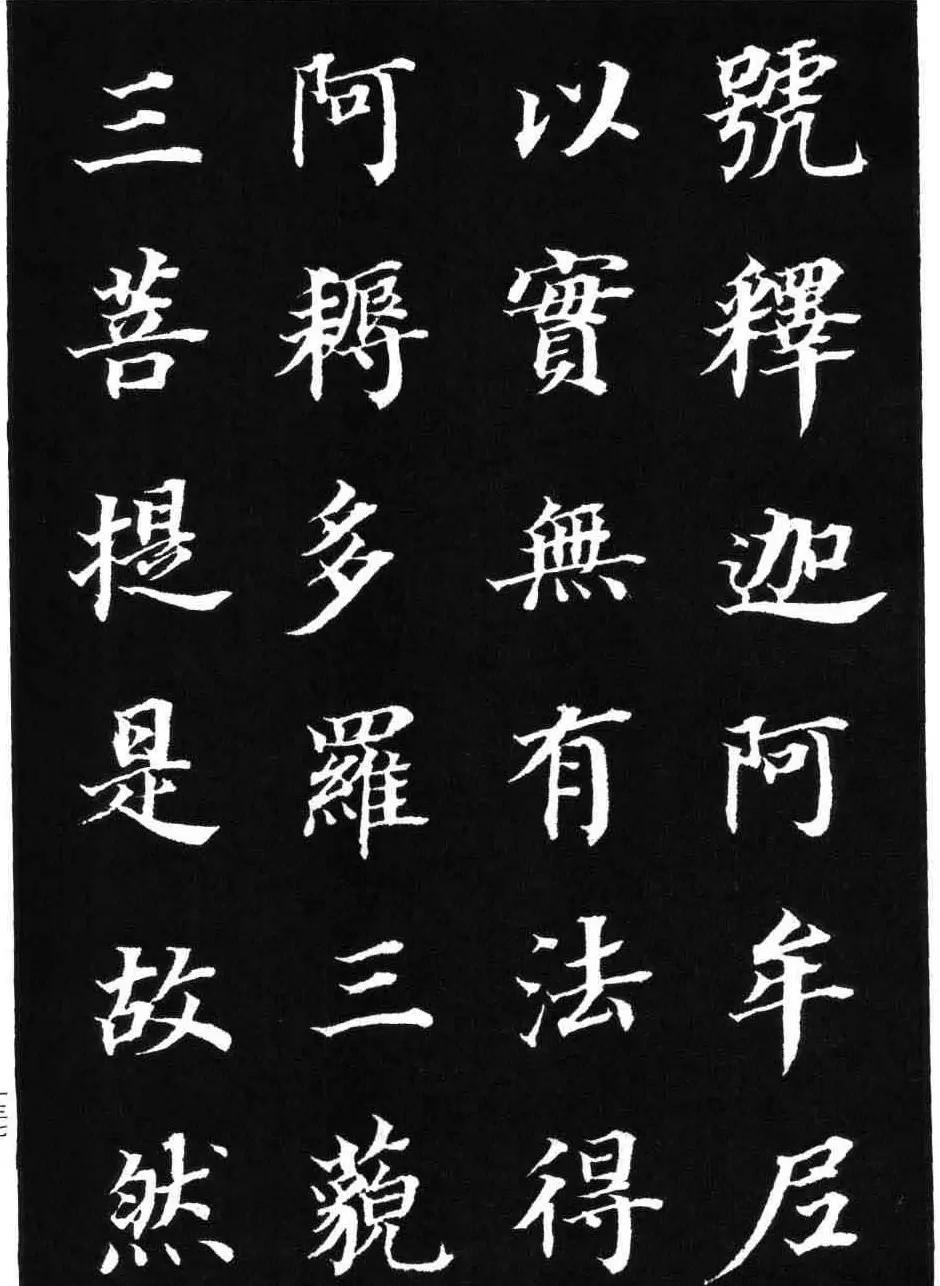 號釋迦阿牟尼
以實無有法得
阿耨多羅三藐
三菩提是故然